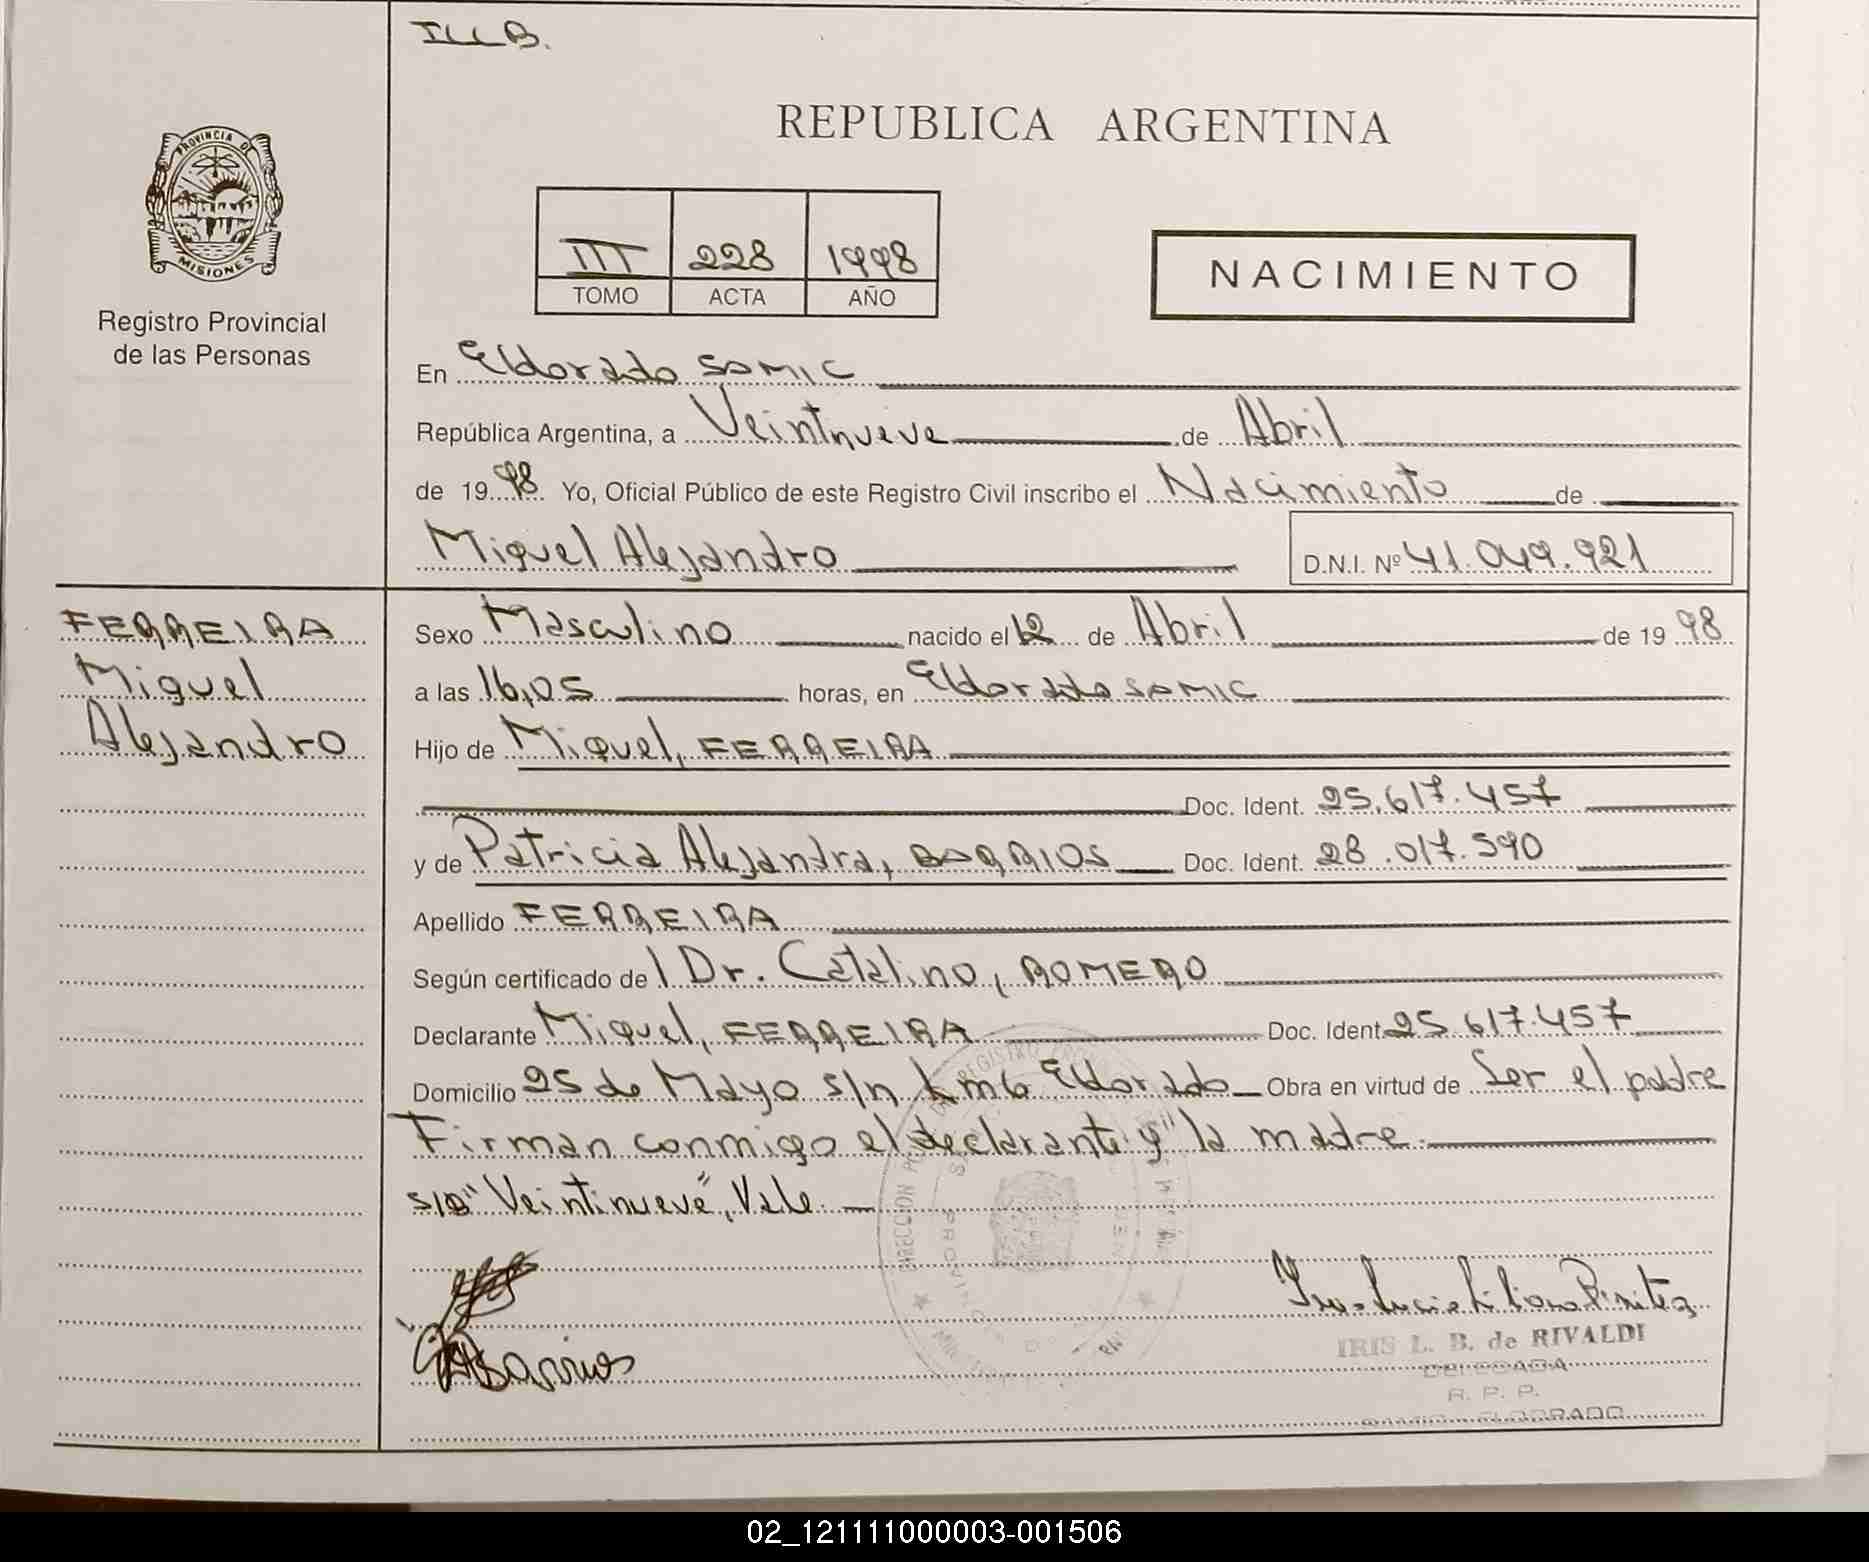 ILLB.
PROVINCIA DE
MISIONES
Registro Provincial
de las Personas
REPUBLICA ARGENTINA
III 228 1998
TOMO ACTA AÑO
NACIMIENTO
En Eldorado SAMIC
República Argentina, a Veintnueve de Abril
de 1998 Yo, Oficial Público de este Registro Civil inscribo el Nacimiento de
Miguel Alejandro D.N.I. Nº 41.049.921
FERREIRA
Miguel
Alejandro
Sexo Masculino nacido el 12 de Abril de 1998
a las 16,05 horas, en Eldorado SAMIC
Hijo de Miguel, FERREIRA
Doc. Ident. 25.617.457
y de Patricia Alejandra, BARRIOS Doc. Ident. 28.017.590
Apellido FERREIRA
Según certificado de l Dr. Catalino, ROMERO
Declarante Miguel, FERREIRA Doc. Ident. 25.617.457
Domicilio 25 de Mayo s/n km6 Eldorado Obra en virtud de Ser el padre
Firman conmigo el declarante y" la madre.
s/b" Veintinueve", Vale.
Barrios
IRIS L. B. de RIVALDI
DELEGADA
R. P. P.
ELDORADO
02_121111000003-001506